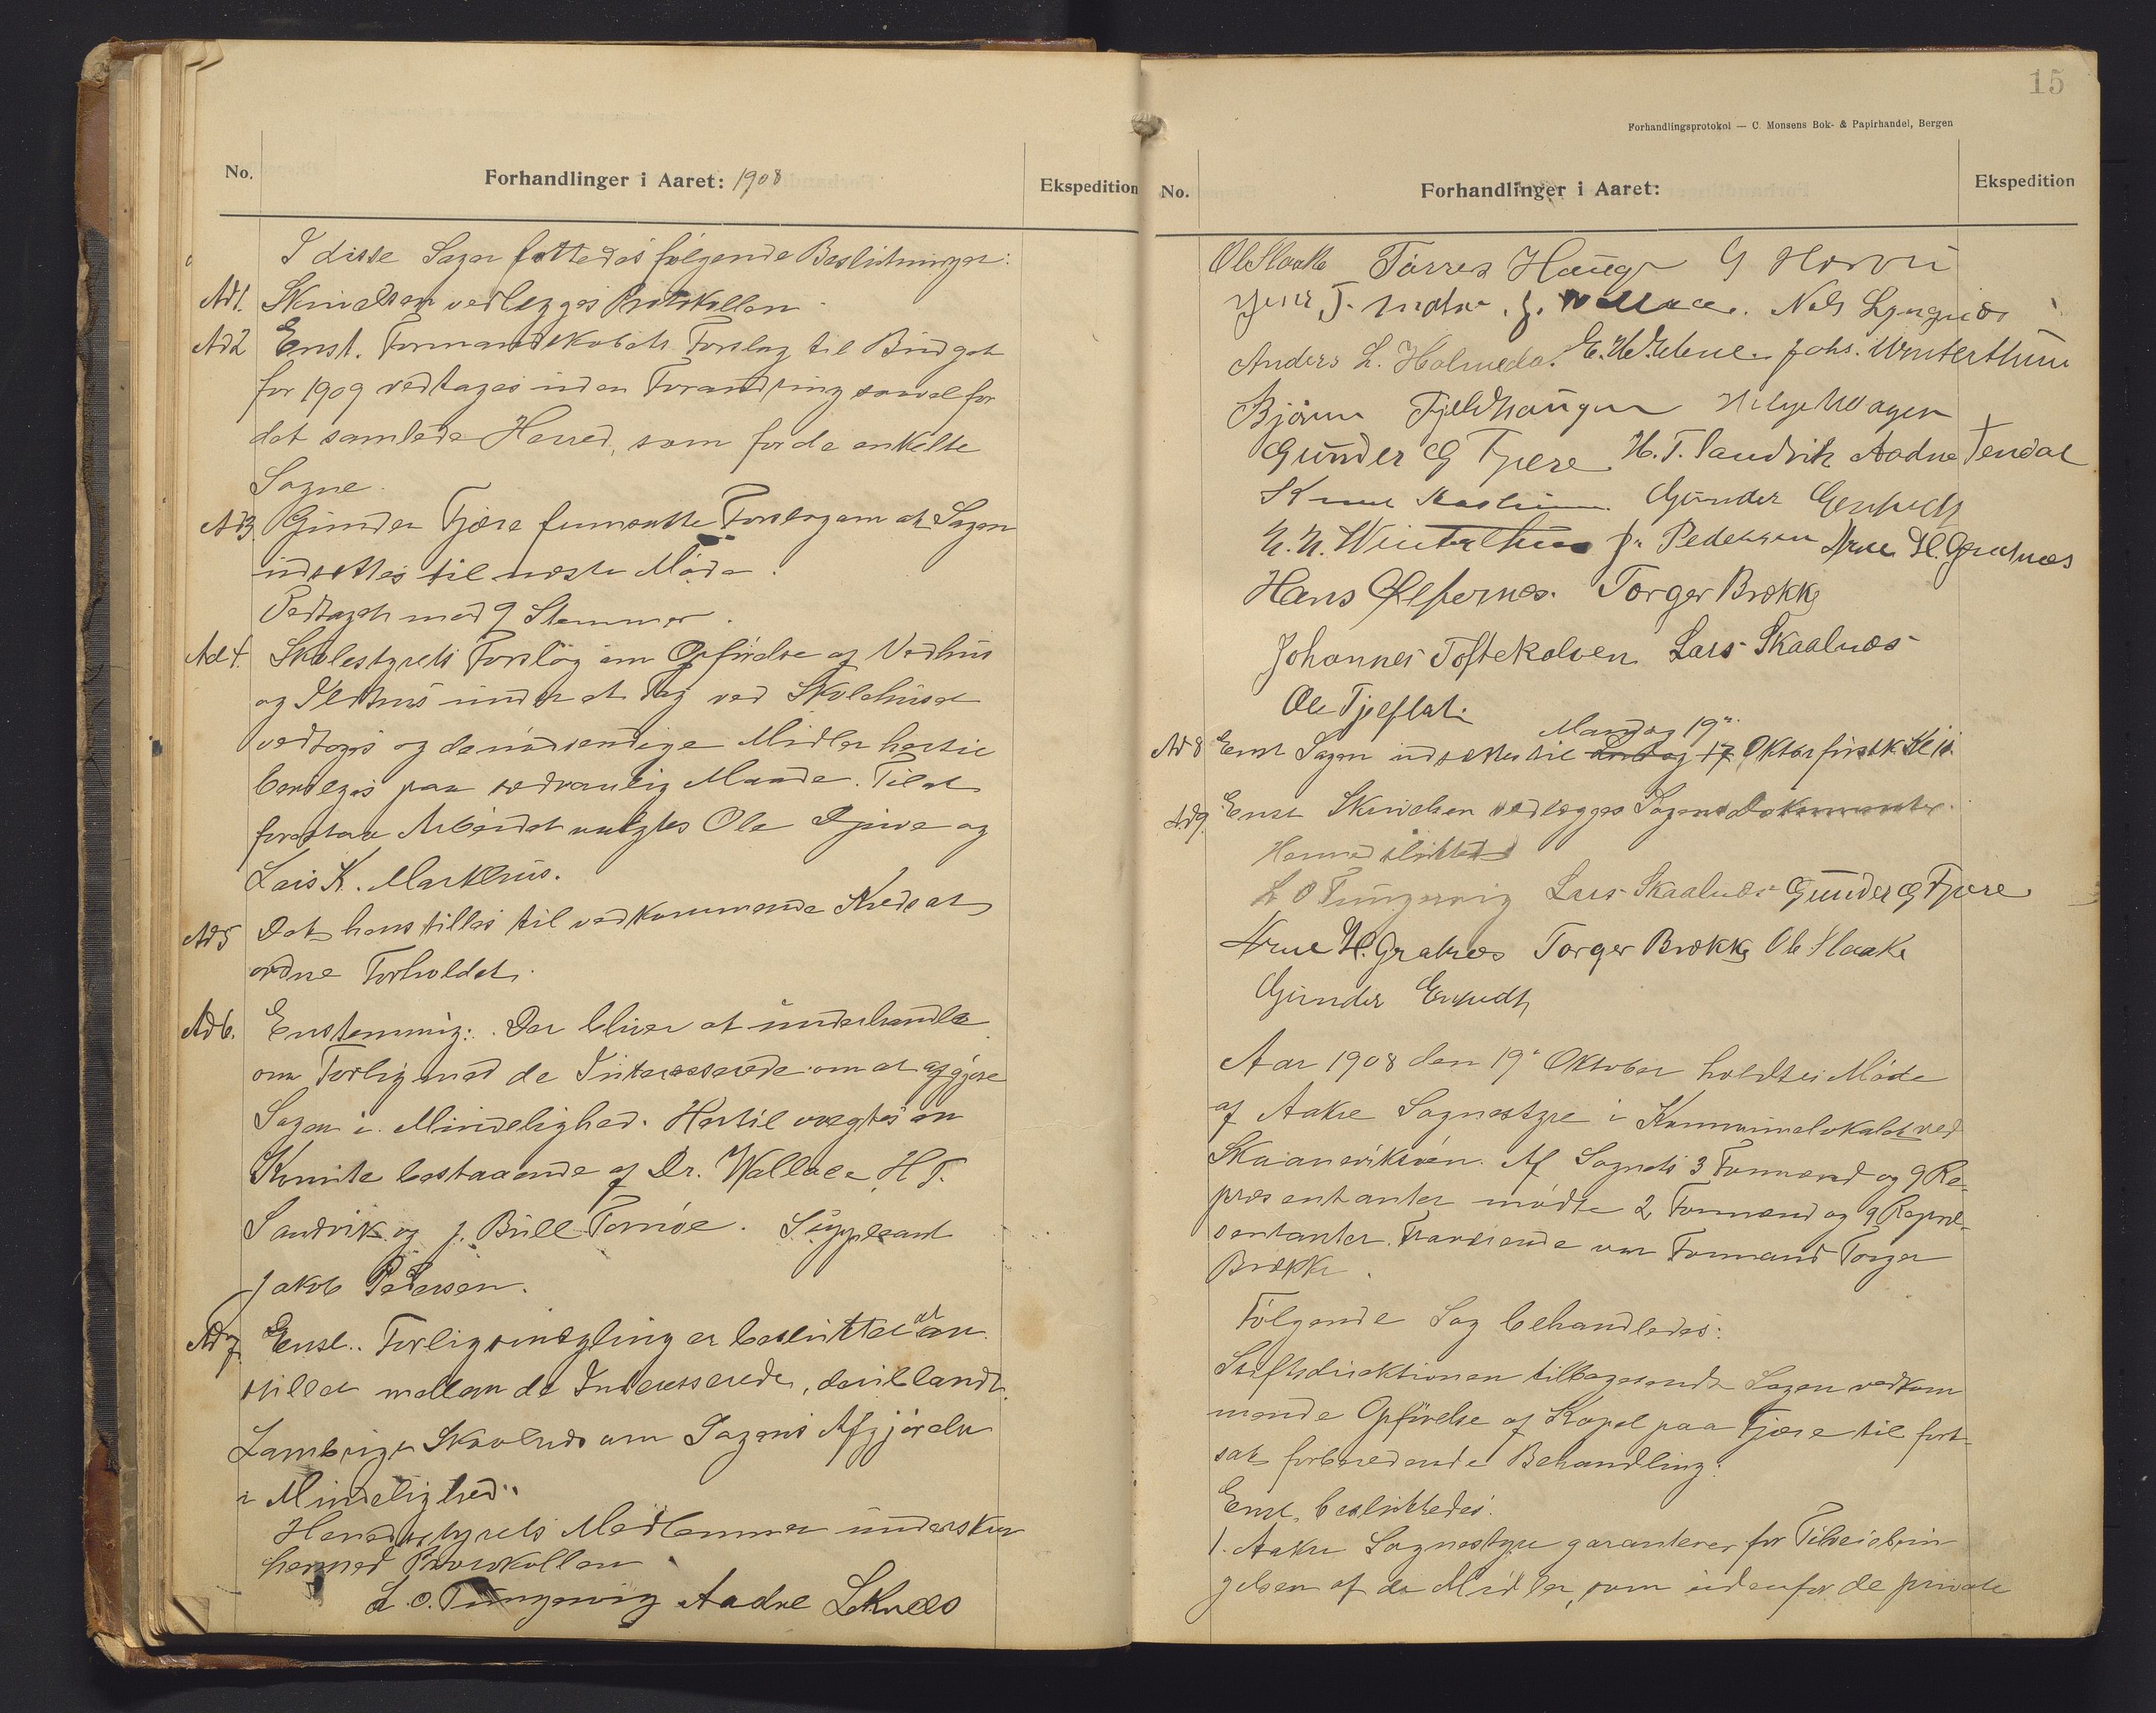 No.
Forhandlinger i Aaret: 1908
Ekspedition
I disse Sager fattedes følgende Beslutninger:
Ad 1. Skrivelsen vedlegges Protokollen.
Ad 2 Enst. Formandskabets Forslag til Budget
for 1909 vedtages uden Forandring saavel for
det samlede Herred, som for de enkelte
Sogne.
Ad 3. Gunder Fjære fremsatte Forslag om at Sagen
udsettes til næste Møde.
Vedtaget med 9 Stemmer.
Ad 4. Skolestyrets Forslag om Opførelse af Vedhus
og Ildhus under et Tag ved Skolehuset
vedtoges og de nødvendige Midler hertil
bevilges paa sedvanlig Maade. Til at
forestaa Arbeidet valgtes Ole Djuve og
Lars K. Markhus.
Ad 5 Det henstilles til vedkommende Kreds at
ordne Forholdet.
Ad 6. Enstemmig: Der bliver at underhandle
om Forlig med de Interesserede om at afgjøre
Sagen i Mindelighed. Hertil valgtes en
Komite bestaaende af Dr. Wallace, H. T.
Sandvik og J. Bull Tornøe. Suppleant
Jakob Pedersen.
Ad 7. Enst.. Forligsmægling er besluttet at an
stilles mellem de Interesserede, deriblandt
Lambrigt Skaalnes om Sagens Afgjørelse
i Mindelighed.
Herredsstyrets Medlemmer underskrev
hermed Protokollen
L. O. Tungesvig Aadne Leknes
15
Forhandlingsprotokol — C. Monsens Bok- & Papirhandel, Bergen
No.
Forhandlinger i Aaret:
Ekspedition
Ole Slaake Tørres Hauge G
Jens T. J. Wallace. Nels
Anders L. Holmedal. Johs. Winterthun
Bjørn Fjeldhaugen Helge Vaagen
Gunder G Fjære H. T. Sandvik Aadne Tendal
Knut Gunder
N. N. Winterthun J. Pedersen Arne H. Gratnes
Hans Ølfernes. Torger Brekke
Johannes Toftekalven Lars Skaalnes
Ole Tjeflat
Mandag 19de
Ad 8 Enst Sagen udsettes til Lørdag 17 Oktober førstk. Kl 10.
Ad 9. Enst Skrivelsen vedlægges Sagens Dokumenter.
Hermed sluttet
L O Tungesvig Lars Skaalnes Gunder G Fjære
Arne H. Gratnes Torger Brekke Ole Slaake
Gunder
Aar 1908 den 19de Oktober holdtes Møde
af Aakre Sognestyre i Kommunelokalet ved
Skaanevikøen. Af Sognets 3 Formænd og 9 Re-
præsentanter mødte 2 Formænd og 9 Repræ-
sentanter. Fraværende var Formand Torger
Brekke.
Følgende Sag behandledes:
Stiftsdirektionen tilbagesendt Sagen vedkom
mende Opførelse af Kapel paa Fjære til fort-
sat forberedende Behandling.
Enst. besluttedes:
1. Aakre Sognestyre garanterer for Tilveiebrin
gelsen af de Midler, som udenfor de private